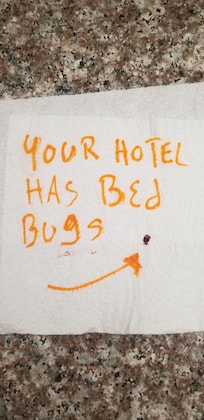 YOUR HOTEL
HAS BEd
BUgs